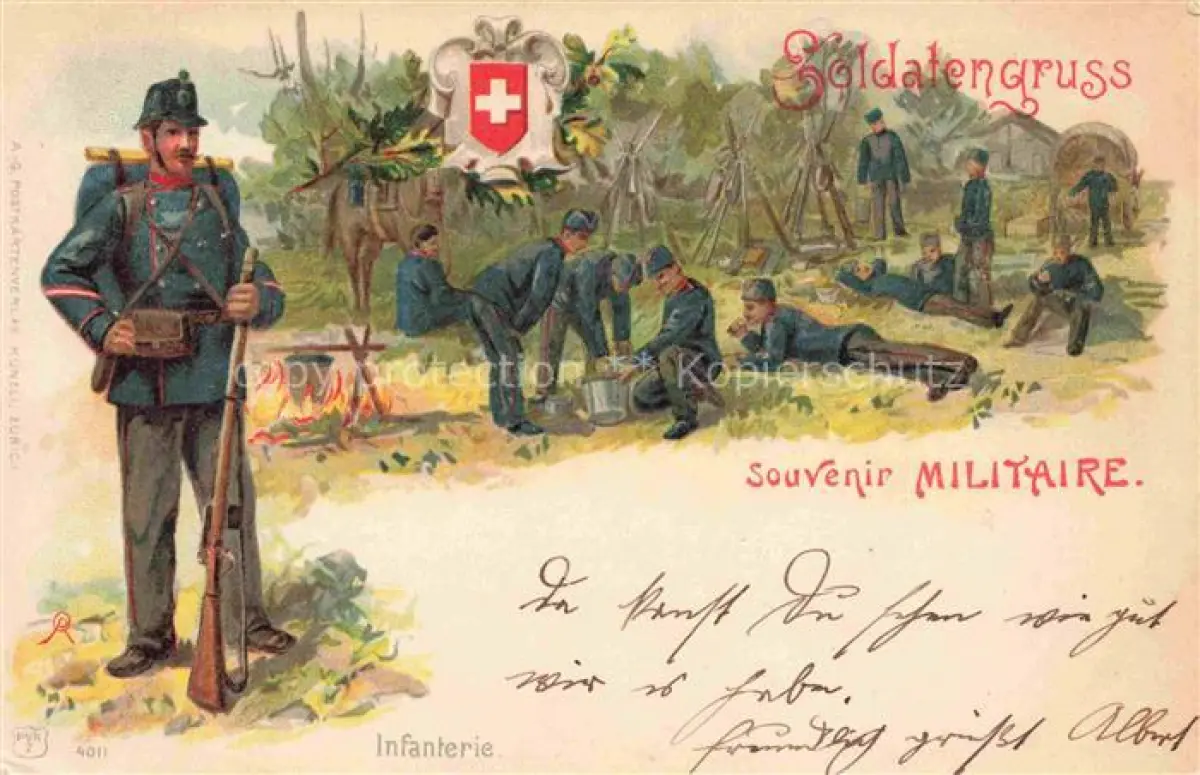 Soldatengruss
A.-G. POSTKARTENVERLAG KÜNZLI, ZÜRICH
copyright by ** Kopierschutz **
Souvenir MILITAIRE.
Da kanst Du sehen wie gut
wir es haben.
freundlich grüßt Albert
4011
Infanterie.